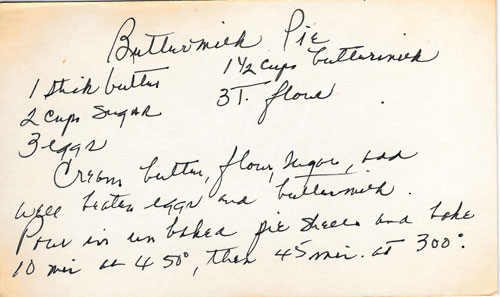 Buttermilk Pie
1 stick butter
1 1/2 cups buttermilk
2 cups sugar
3 T. flour
3 eggs
Cream butter, flour, sugar, add
well beaten eggs and buttermilk.
Pour in unbaked pie shells and bake
10 min at 450°, then 45 min. at 300°.